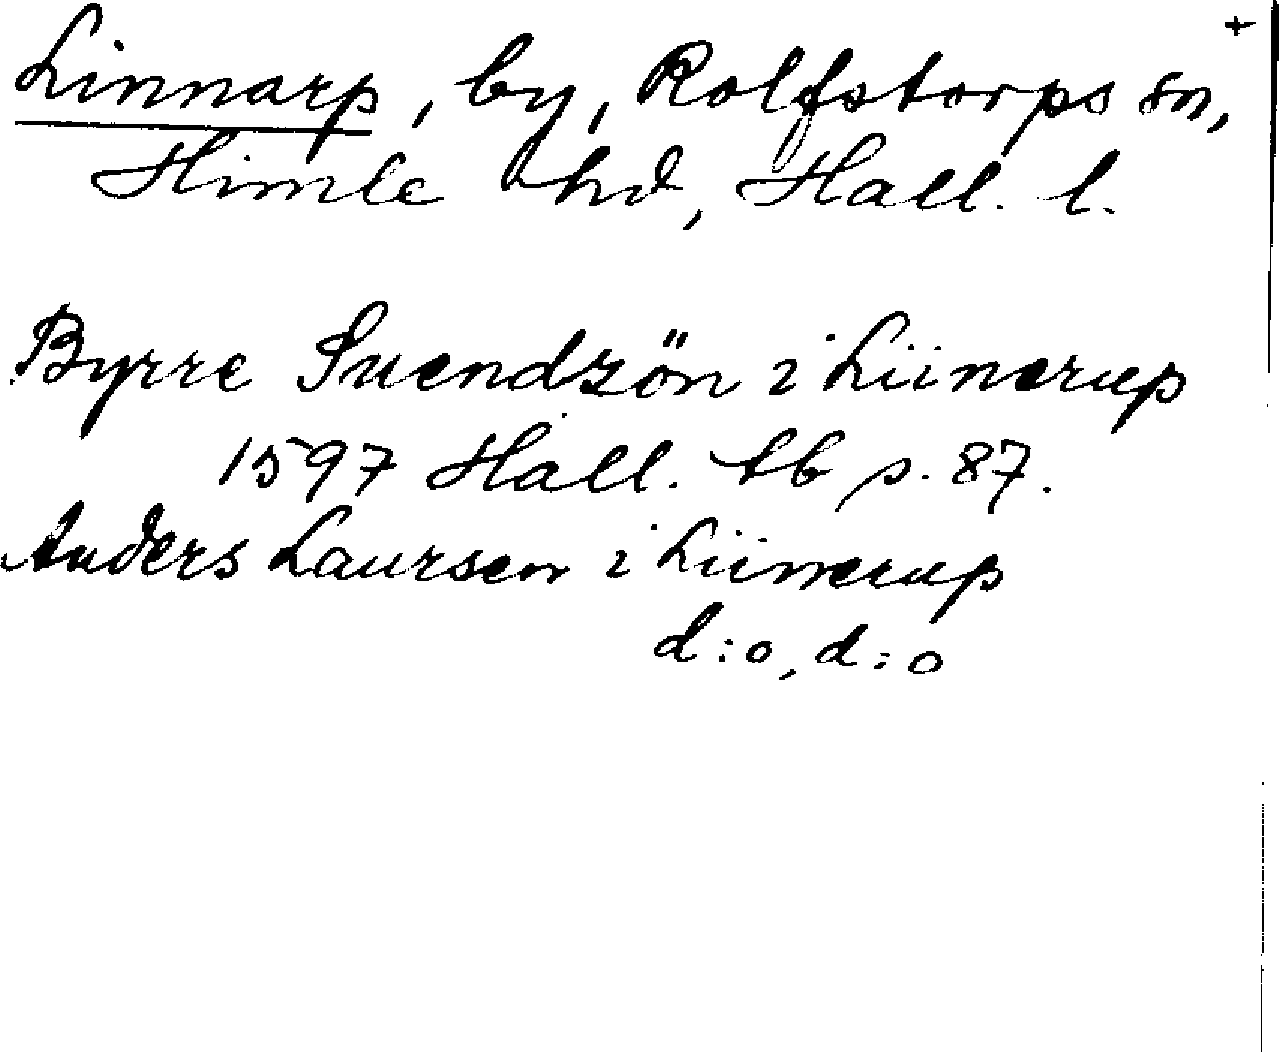 +
Linnarp, by, Rolfstorps sn,
Himle hd, Hall. l.
Byrre Suendzön i Liinerup
1597 Hall. tb s. 87.
Anders Laursen i Liinnerup
d:o, d:o